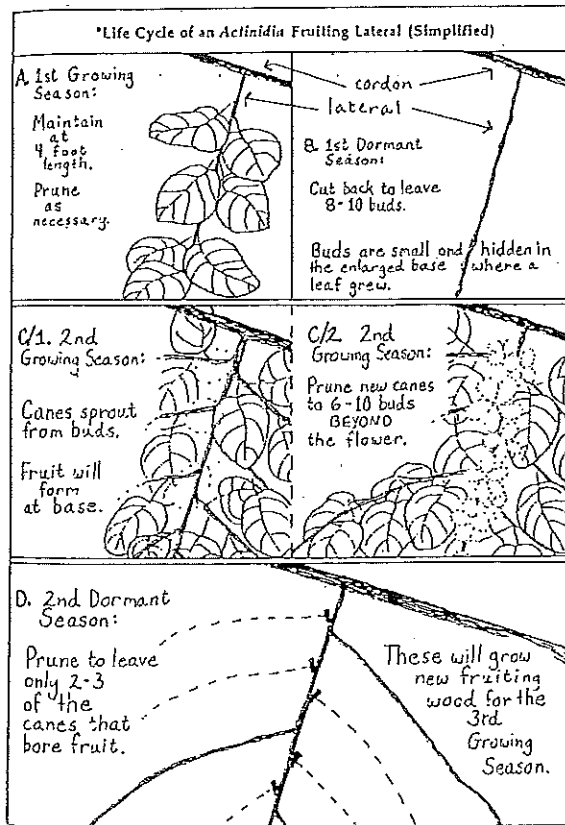 *Life Cycle of an Actinidia Fruiting Lateral (Simplified)
A. 1st Growing
Season:
Maintain
at
4 foot
length.
Prune
as
necessary.
cordon
lateral
B. 1st Dormant
Season:
Cut back to leave
8-10 buds.
Buds are small and hidden in
the enlarged base where a
leaf grew.
C/1. 2nd
Growing Season:
Canes sprout
from buds.
Fruit will
form
at base.
C/2. 2nd
Growing Season:
Prune new canes
to 6-10 buds
BEYOND
the flower.
D. 2nd Dormant
Season:
Prune to leave
only 2-3
of the
canes that
bore fruit.
These will grow
new fruiting
wood for the
3rd
Growing
Season.